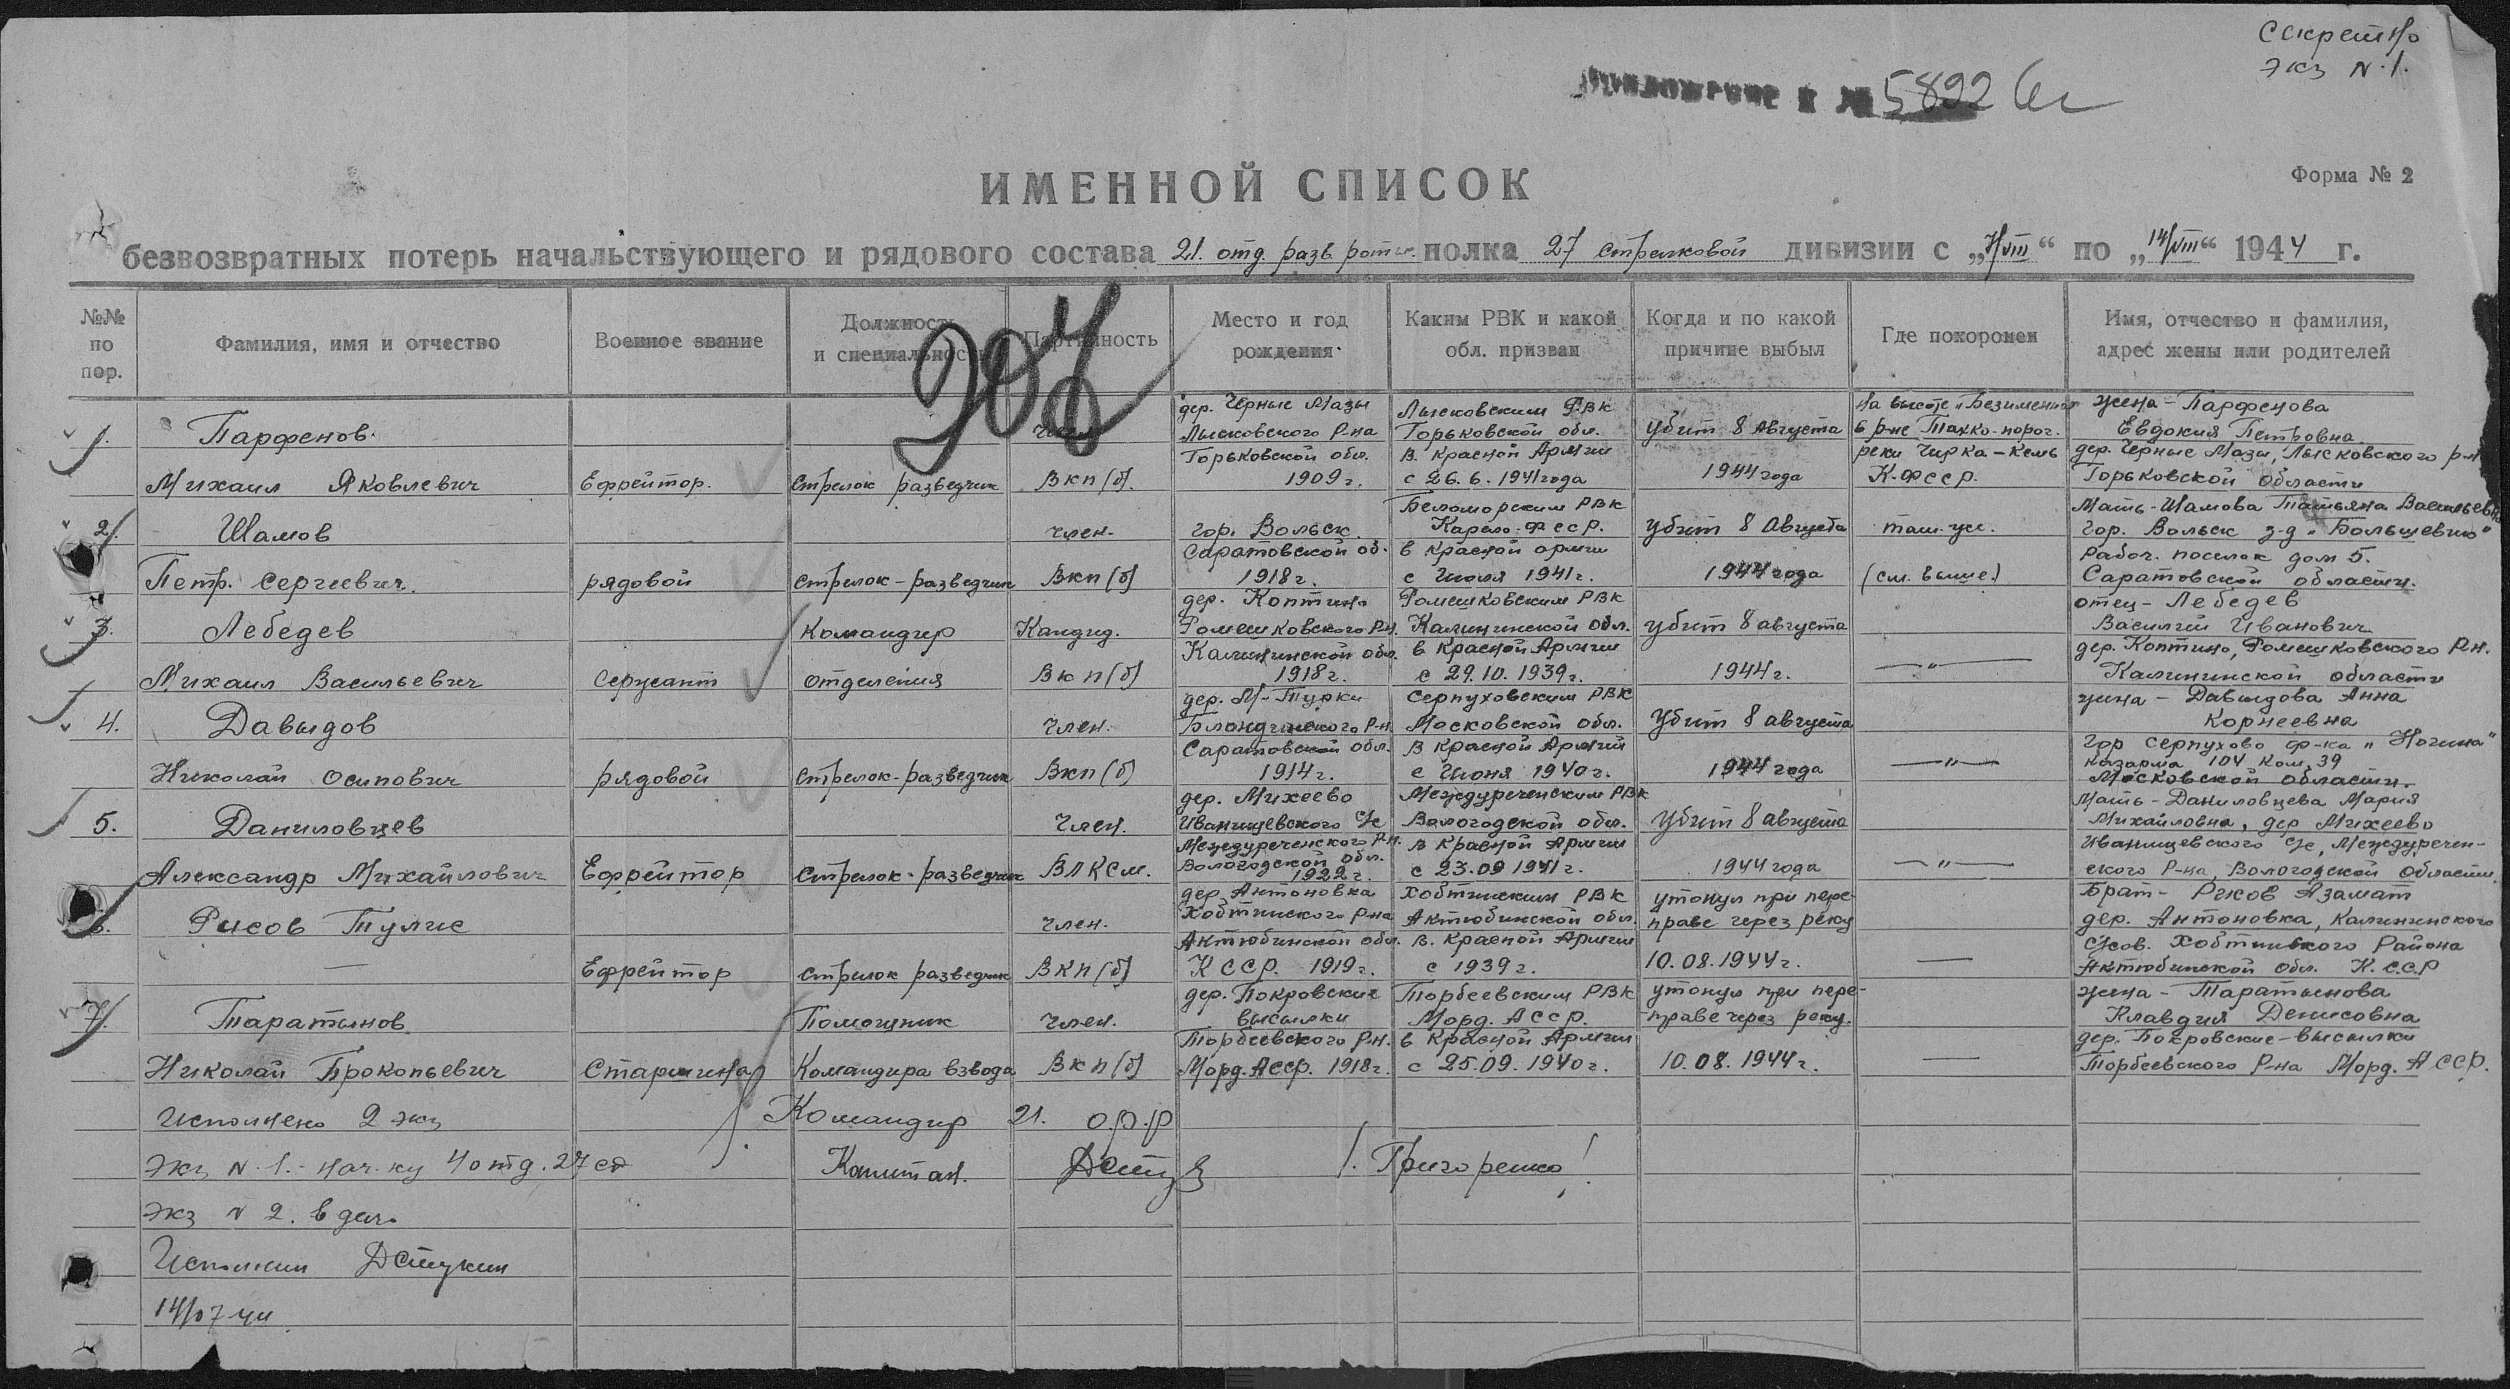 Секретно
Экз N.1.
Приложение к № 5892
ИМЕННОЙ СПИСОК
Форма № 2
безвозвратных потерь начальствующего и рядового состава 21. отд. разв. роты. полка 27 стрелковой дивизии с „7/VIII“ по „14/VIII“ 1944 г.
№№ по пор.
Фамилия, имя и отчество
Военное звание
Должность и специальность
Партийность
Место и год рождения
Каким РВК и какой обл. призван
Когда и по какой причине выбыл
Где похоронен
Имя, отчество и фамилия, адрес жены или родителей
1.
Парфенов
Михаил Яковлевич
Ефрейтор.
Стрелок разведчик
Член
ВКП(б).
дер. Черные Мазы
Лысковского Р-на
Горьковской обл.
1909 г.
Лысковским РВК
Горьковской обл.
в. Красной Армии
с 26.6.1941 года
Убит 8 Августа
1944 года
На высоте „Безименная
в р-не Тахко-порог.
реки Чирка-Кемь
К-ФССР.
жена - Парфенова
Евдокия Петровна
дер. Черные Мазы, Лысковского р-на
Горьковской области
2.
Шамов
Петр. Сергеевич.
рядовой
Стрелок-разведчик
член.
ВКП(б)
гор. Вольск
Саратовской об.
1918 г.
Беломорским РВК
Карело-ФССР.
в Красной армии
с Июля 1941 г.
Убит 8 Августа
1944 года
там-же.
(см. выше.)
Мать-Шамова Татьяна Васильевна
гор. Вольск з-д „Большевик“
рабоч. поселок дом 5.
Саратовской области.
3.
Лебедев
Михаил Васильевич
Сержант
Командир
отделения
Кандид.
ВКП(б)
дер. Коптино
Рамешковского Р-н.
Калининской обл.
1918 г.
Рамешковским РВК
Калининской обл.
в Красной Армии
с 29.10.1939 г.
Убит 8 августа
1944 г.
—„—
отец - Лебедев
Василий Иванович
дер. Коптино, Рамешковского Р-н.
Калининской области
4.
Давыдов
Николай Осипович
рядовой
Стрелок-разведчик
член.
ВКП(б)
дер. М-Турки
Саратовской обл.
1914 г.
Серпуховским РВК
Московской обл.
в Красной Армии
с Июня 1940 г.
Убит 8 августа
1944 года
—„—
жена - Давыдова Анна
Корнеевна
гор Серпухово ф-ка „Ногина“
казарма 104 ком. 39
Московской области.
5.
Даниловцев
Александр Михайлович
Ефрейтор
Стрелок-разведчик
Член.
ВЛКСМ.
дер. Михеево
Иванищевского с/с
Междуреченского Р-н.
Вологодской обл.
1922 г.
Междуреченским РВК
Вологодской обл.
в Красной Армии
с 23.09 1941 г.
Убит 8 августа
1944 года
—„—
Мать - Даниловцева Мария
Михайловна, дер Михеево
Иванищевского с/с, Междуречен-
ского Р-на, Вологодской области.
6.
Рисов Тулис
—
Ефрейтор
Стрелок разведчик
член.
ВКП(б)
дер. Антоновка
Хобтинского Р-на
Актюбинской обл.
КССР. 1919 г.
Хобтинским РВК
Актюбинской обл.
в. Красной Армии
с 1939 г.
утонул при пере-
праве через реку
10.08.1944 г.
—
Брат - Рисов Азамат
дер. Антоновка, Калининского
с/сов. Хобтинского Района
Актюбинской обл. К.С.С.Р
7.
Таратынов
Николай Прокопьевич
Старшина
Помощник
Командира взвода
член.
ВКП(б)
дер. Покровские
высылки
Торбеевского Р-н.
Морд. АССР. 1918 г.
Торбеевским РВК
Морд. АССР.
в Красной Армии
с 25.09.1940 г.
утонул при пере-
праве через реку.
10.08.1944 г.
—
жена - Таратынова
Клавдия Денисовна
дер. Покровские-высылки
Торбеевского Р-на Морд. АССР.
Исполнено 2 экз
Командир 21. о.р.р
Экз N.1.- нач-ку 4 отд. 27 сд
Капитан.
/. Григоренко /
Экз N 2. в дело
Исполнил
14/07 44